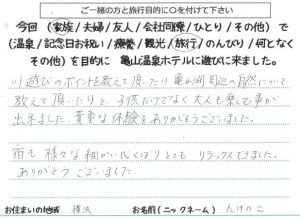 ご一緒の方と旅行目的に〇を付けて下さい
今回（家族/夫婦/友人/会社同僚/ひとり/その他）で
（温泉/記念日お祝い/療養/観光/旅行/のんびり/何となく
その他）を目的に 亀山温泉ホテルに遊びに来ました。
川遊びのポイントを教えて頂いたり 亀山湖周辺の自然について
教えて頂いたりと、子供だけでなく大人も楽しむ事が
出来ました。貴重な体験をありがとうございました。
宿も 様々な細かい心くばりとてもリラックスできました。
ありがとうございました
お住まいの地域 横浜 お名前（ニックネーム） たけのこ